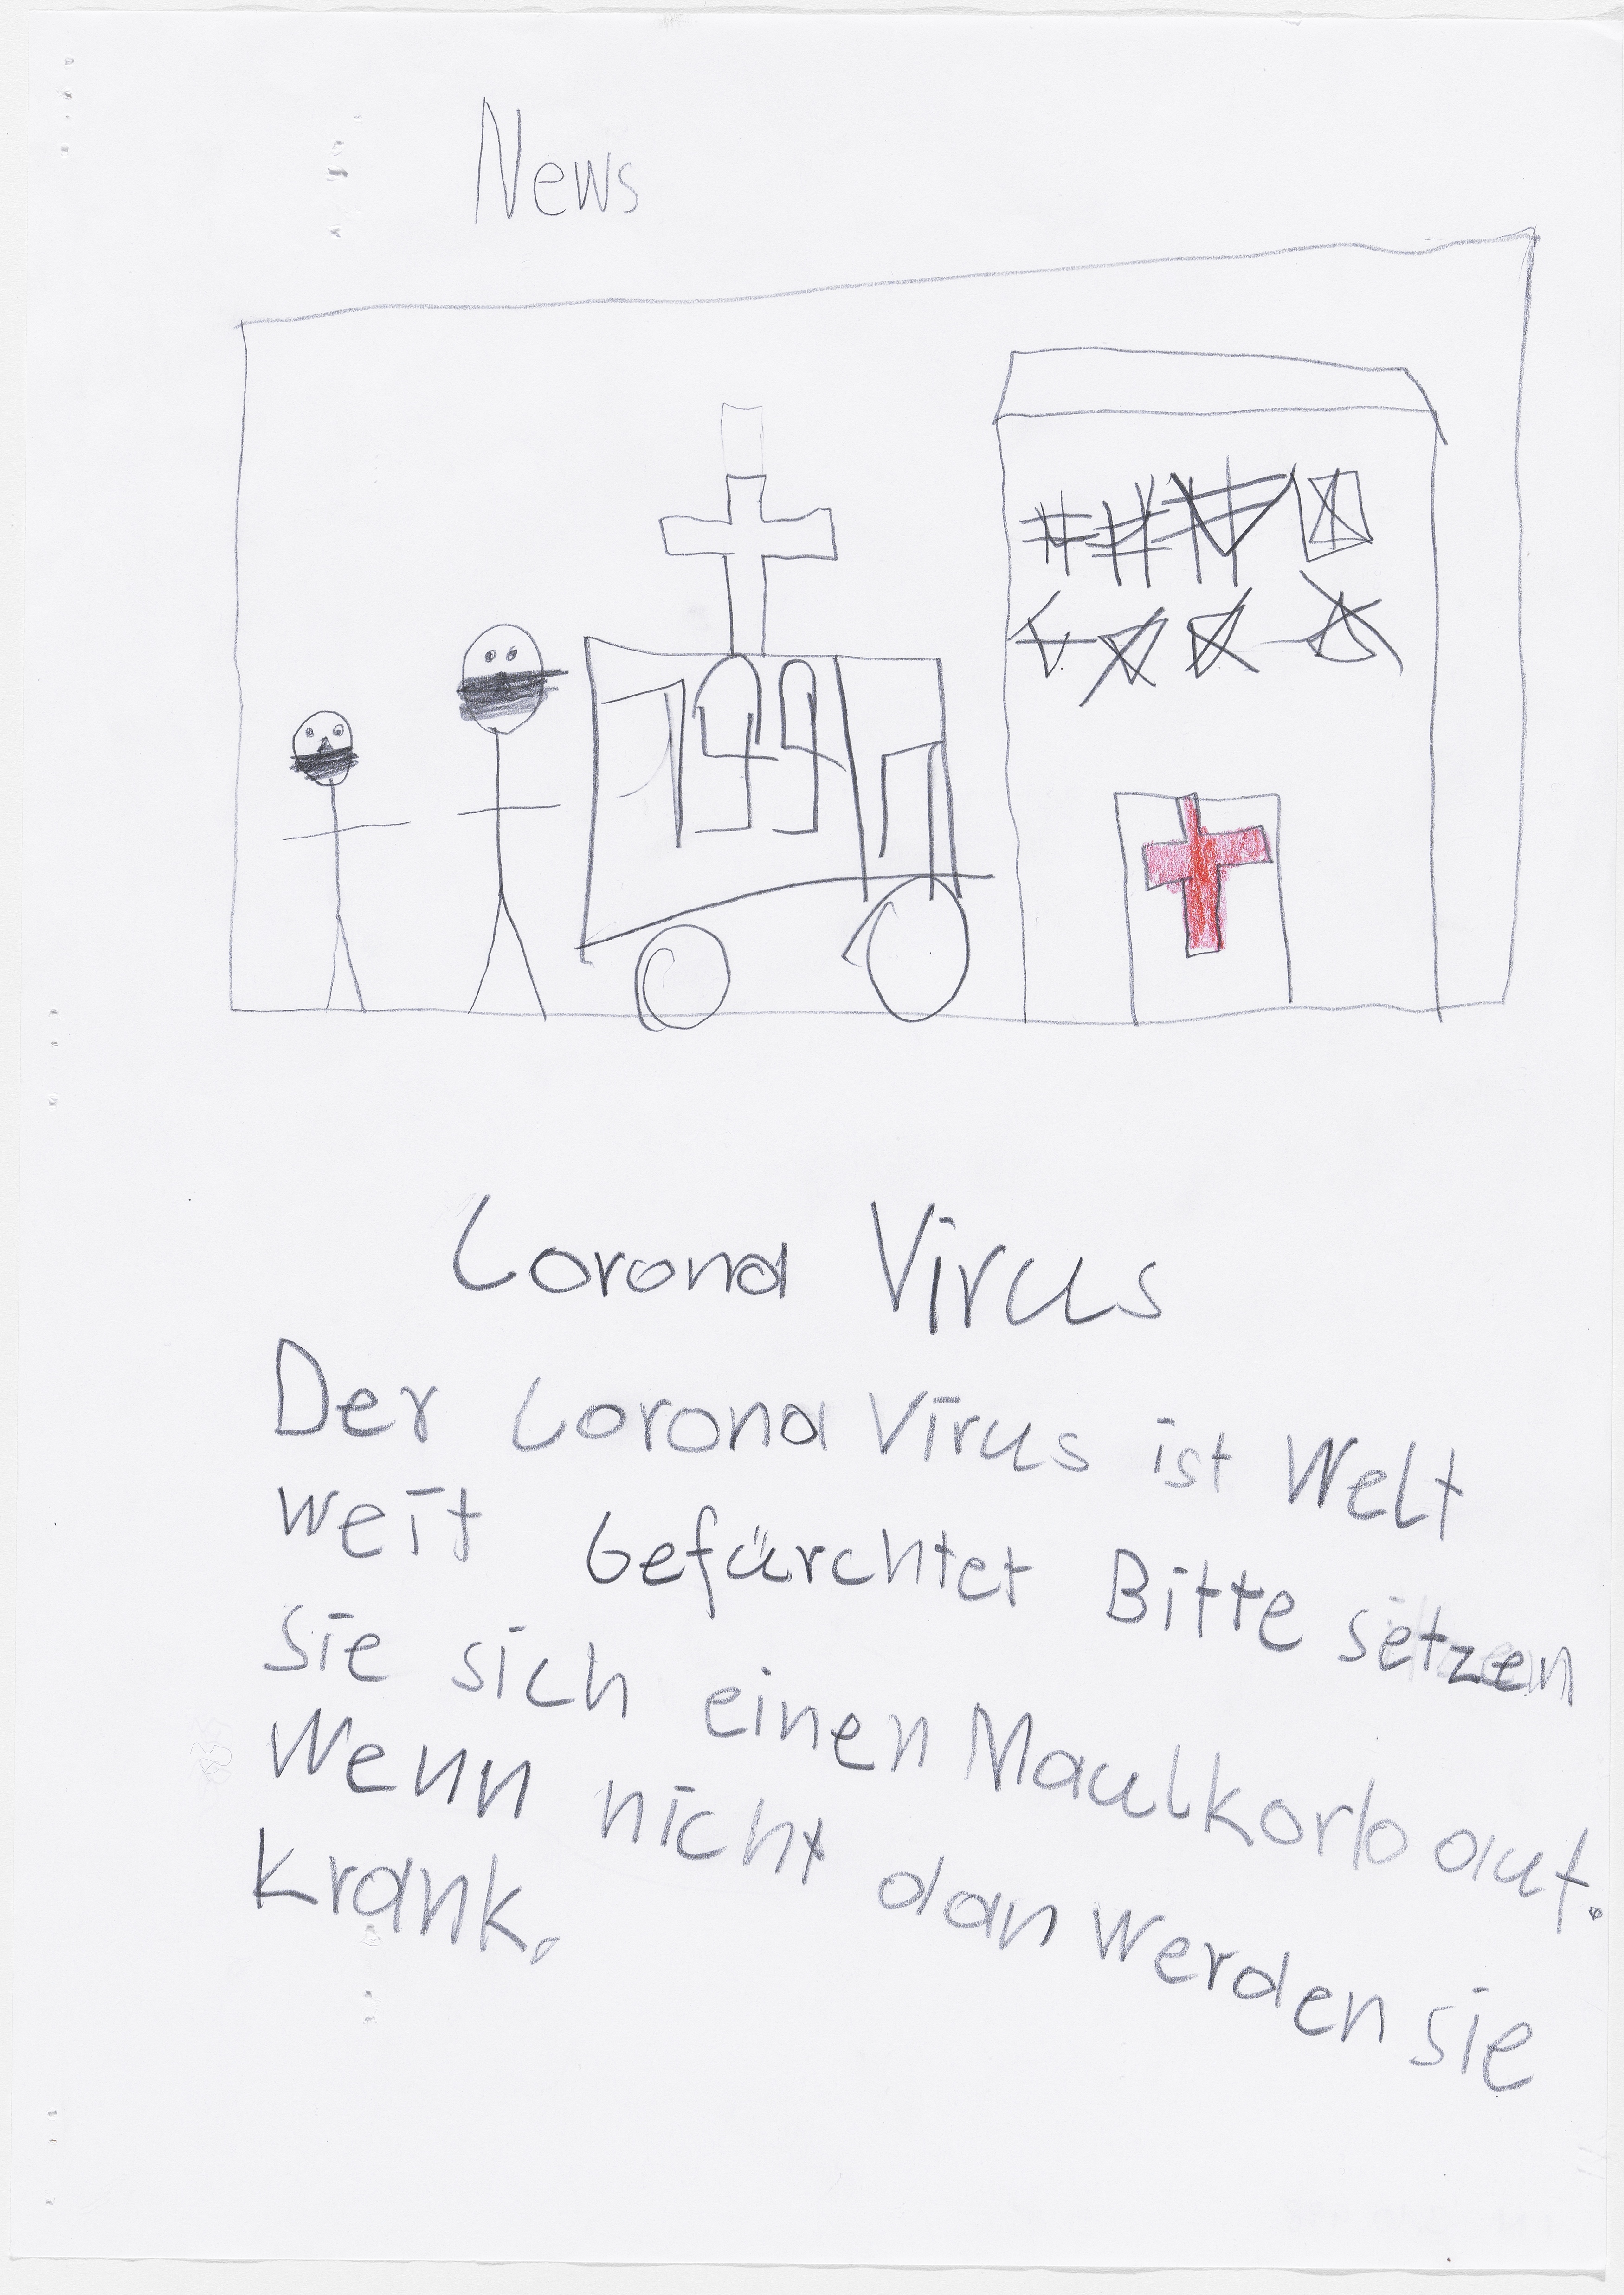 News
144
Corona Virus
Der Corona Virus ist Welt
weit Gefürchtet Bitte setzen
Sie sich einen Maulkorb auf.
Wenn nicht dan werden sie
Krank.